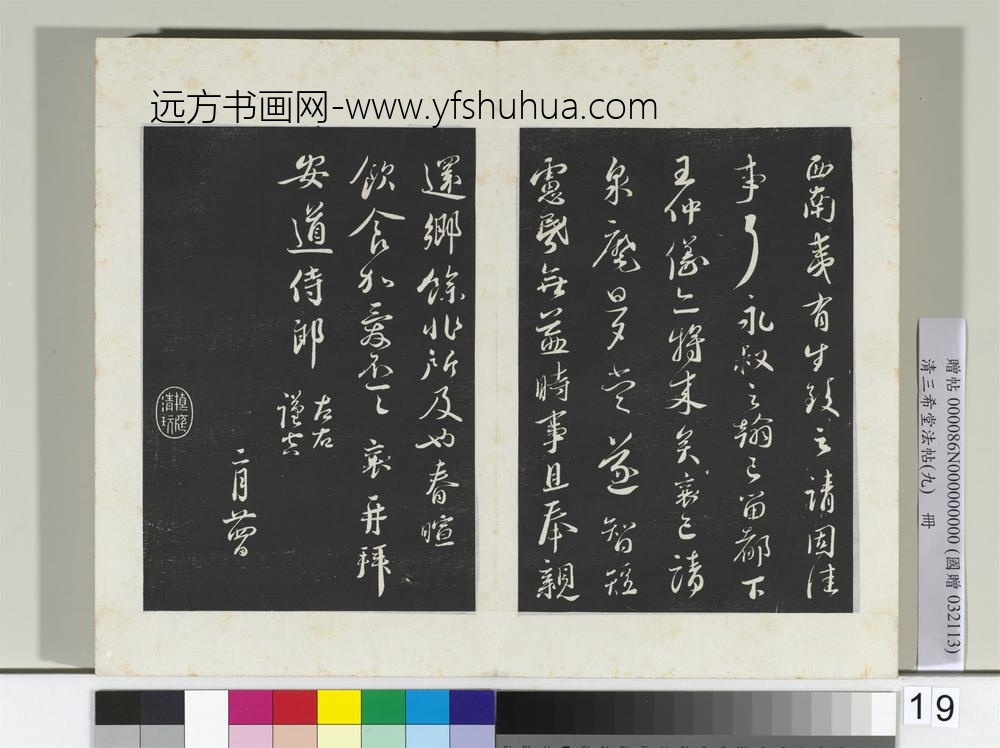 远方书画网-www.yfshuhua.com
西南夷有生致之請固佳
事了永叔之翰已留都下
王仲儀亦將來矣襄已請
泉麾旦夕當遂智短
慮昏無益時事且奉親
還鄉餘非所及也春暄
飲食加愛不一襄再拜
安道侍郎左右
謹空
二月
贈帖 000086N000000000 (國贈 032113)
清三希堂法帖(九) 冊
19